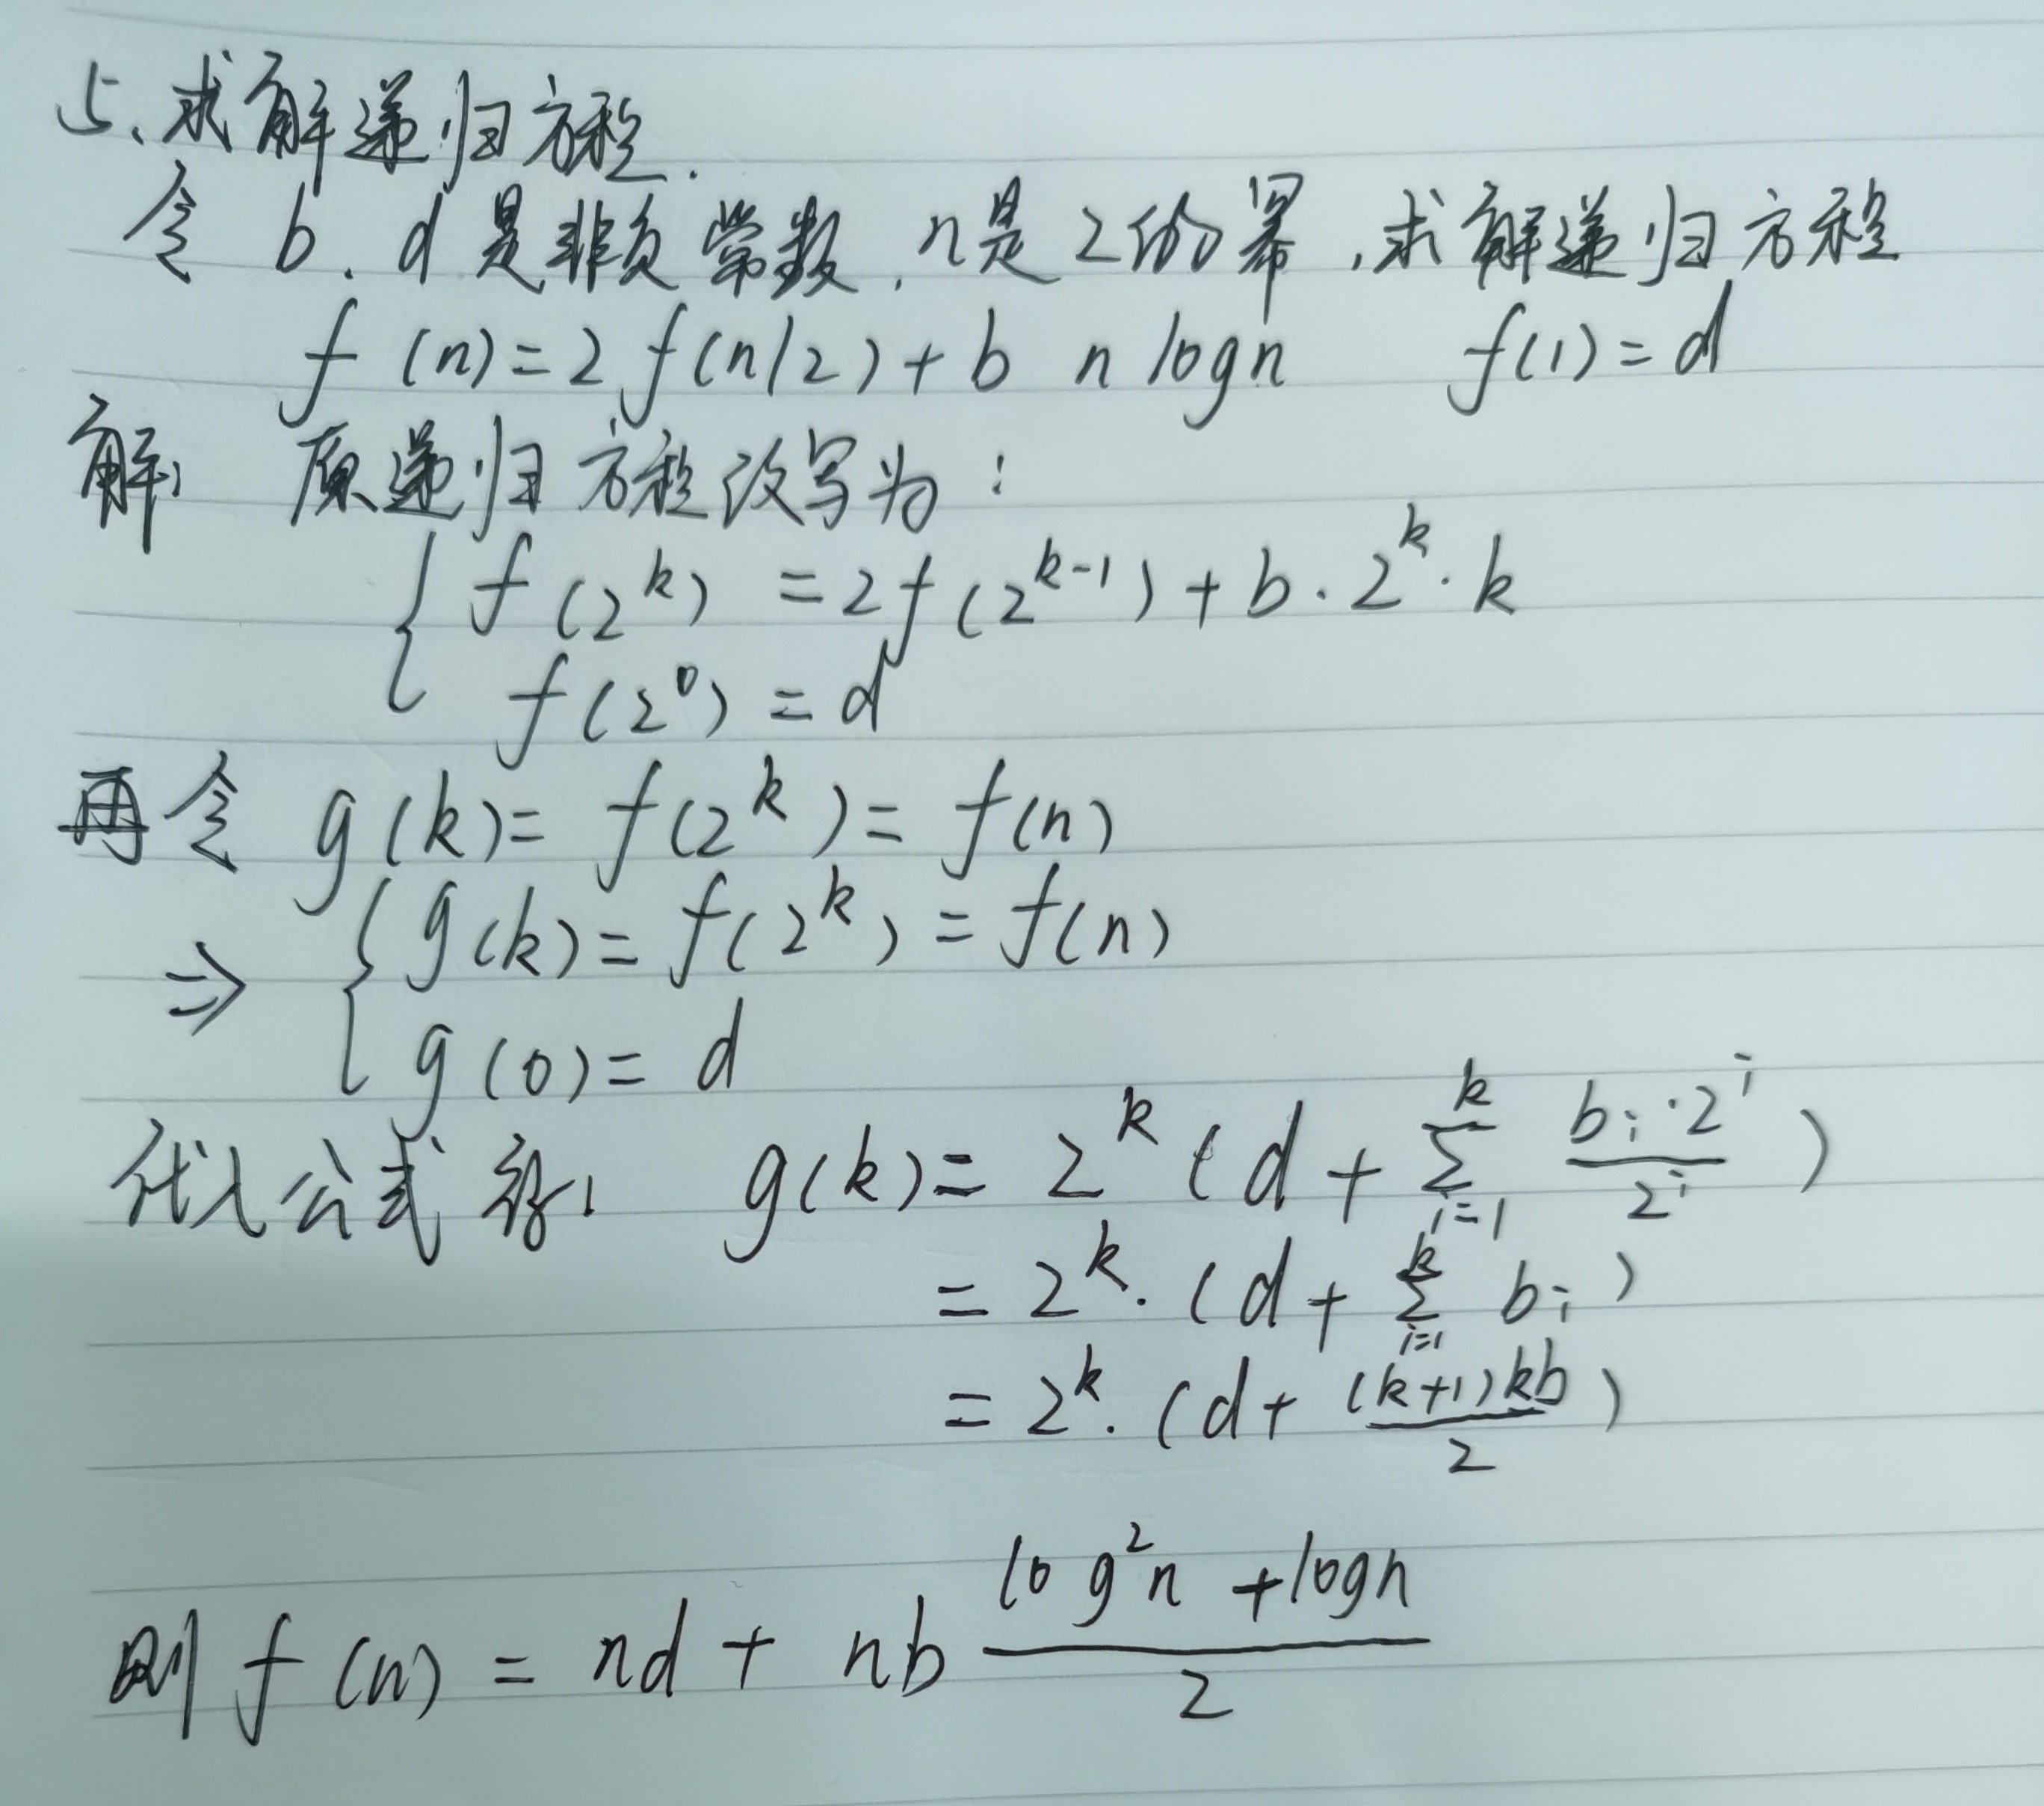 5、求解递归方程.
令 b、d 是非负常数,n是2的幂,求解递归方程
f(n)=2f(n/2)+b n logn f(1)=d
解: 原递归方程改写为:
{ f(2^k) =2f(2^{k-1})+b·2^k·k
f(2^0)=d
再令 g(k)=f(2^k)=f(n)
⇒ { g(k)=f(2^k)=f(n)
g(0)=d
代入公式得: g(k)=2^k(d+\sum_{i=1}^{k}\frac{bi·2^i}{2^i})
=2^k·(d+\sum_{i=1}^{k}bi)
=2^k·(d+\frac{(k+1)kb}{2})
则f(n)=nd+nb\frac{log^2n+logn}{2}